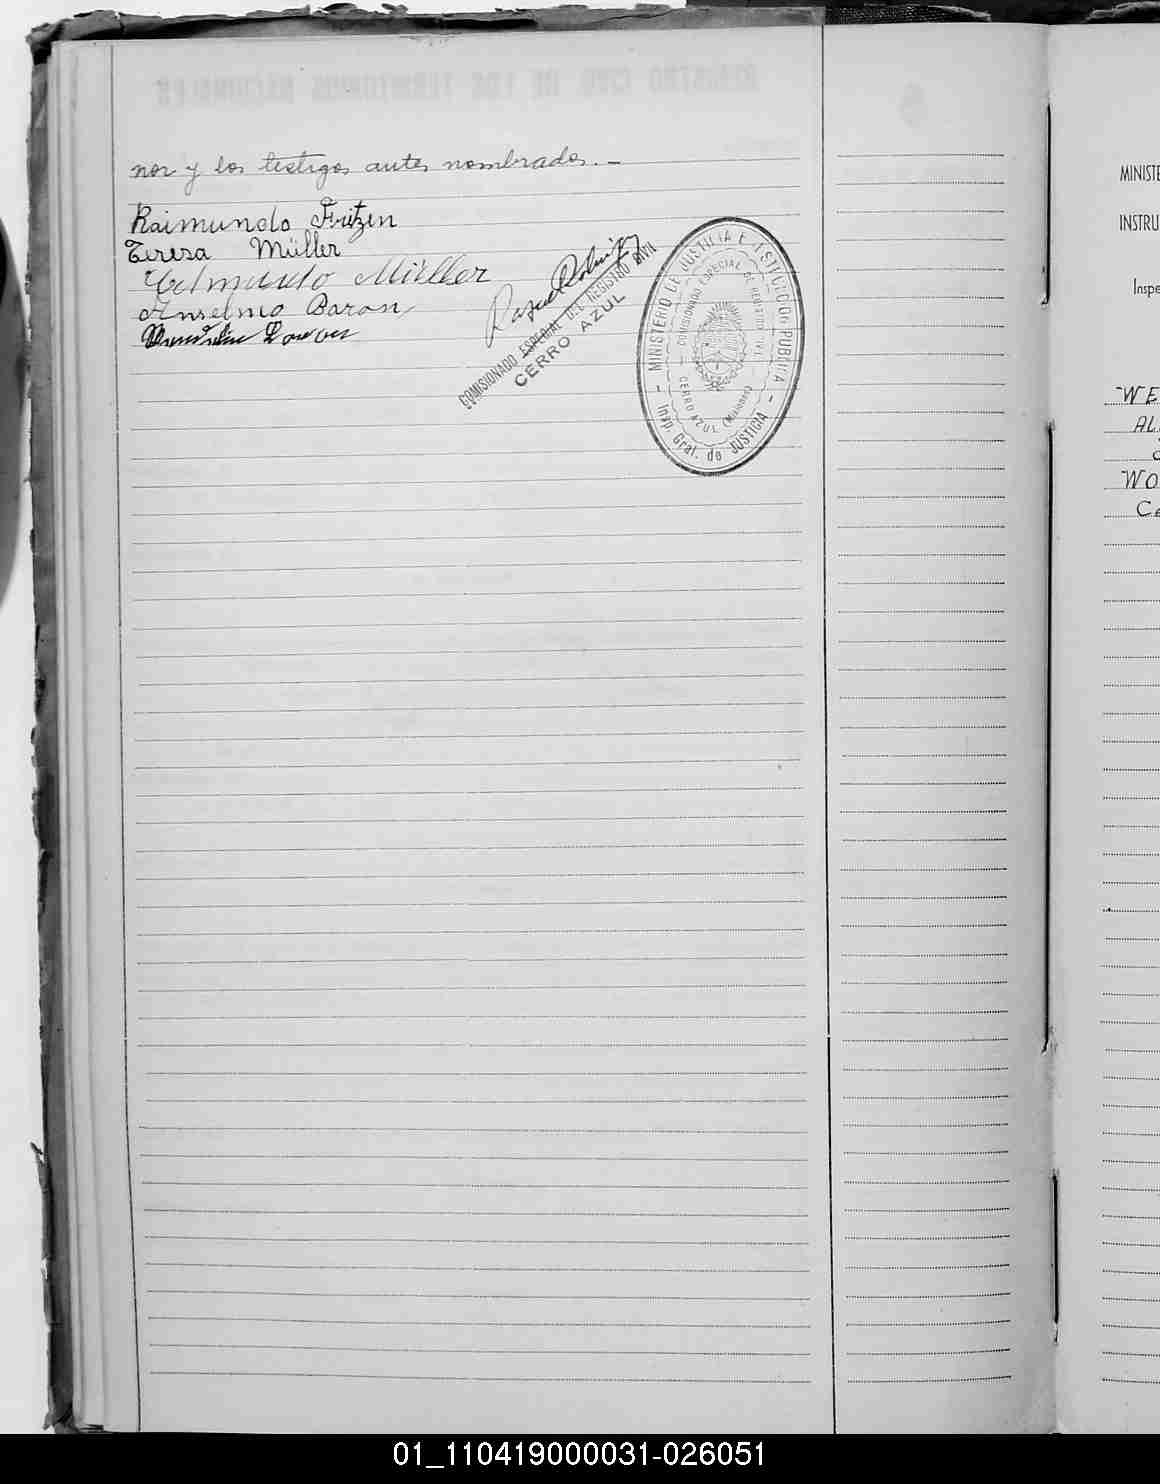 nor y los testigos antes nombrados.—
Raimundo Fritzen
Teresa Müller
Edmundo Müller
Anselmo Baron
COMISIONADO ESPECIAL DEL REGISTRO CIVIL
CERRO AZUL
- MINISTERIO DE JUSTICIA E INSTRUCCION PUBLICA -
Insp. Gral. de JUSTICIA
COMISIONADO ESPECIAL DE REGISTRO CIVIL
CERRO AZUL (Misiones)
MINISTE
INSTRU
Inspe
WE
AL
WO
Ce
01_110419000031-026051